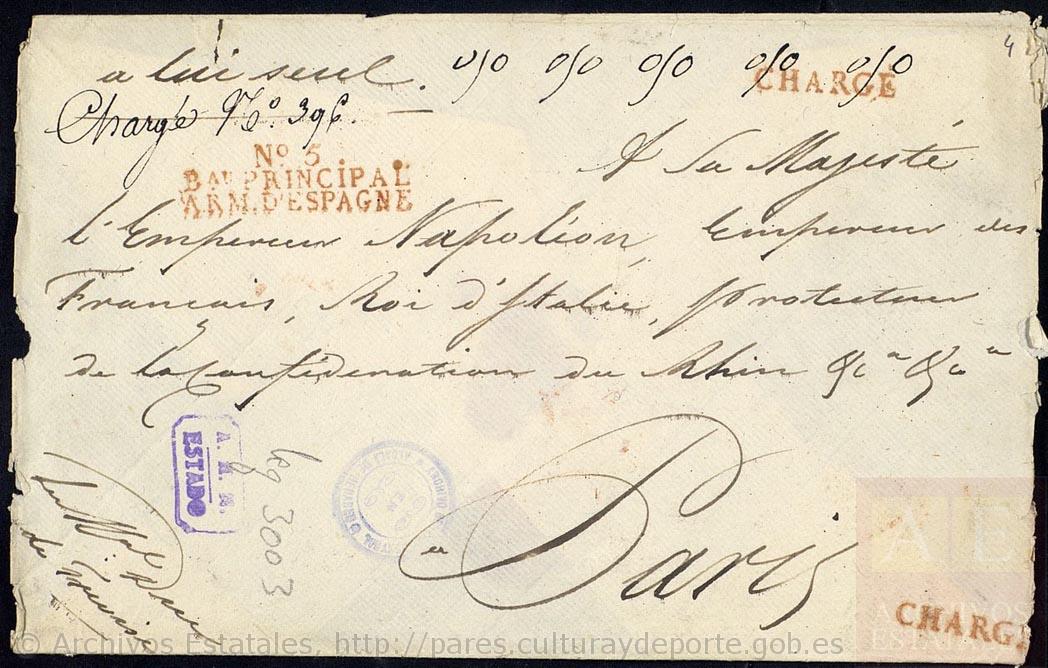 a lui seul. % % % % %
CHARGÉ
Chargé No. 396.
4
No 5
Bau PRINCIPAL
ARM. D'ESPAGNE
A Sa Majesté
l'Empereur Napoléon, Empereur des
Français, Roi d'Italie, Protecteur
de la Confédération du Rhin &ca &ca
a Paris
A. H. N.
ESTADO
leg 3003
du Mal Duc
de Trévise
CHARGÉ
AE
ARCHIVOS
ESTATALES
© Archivos Estatales, http://pares.culturaydeporte.gob.es